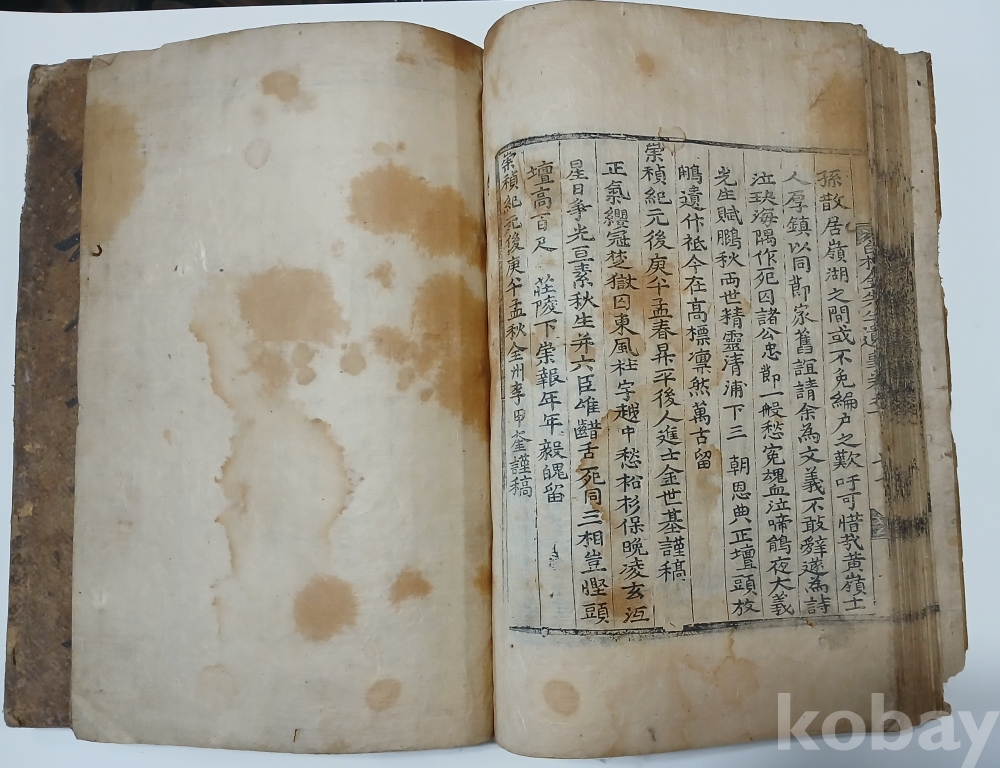 孫散居嶺湖之間或不免編戶之歎吁可惜哉黃嶺士
人厚鎭以同鄭家舊誼請余為文義不敢辭遂為詩
泣玦海隅作死囚諸公忠節一般愁寃魂血泣啼鵑夜大義
先生賦鵬秋両世精靈清浦下三 朝恩典正壇頭放
鵬遺什祗今在高標凛然萬古留
崇禎紀元後庚午孟春昇平後人進士金世基謹稿
正氣纓冠楚獄囚東風杜宇越中愁松杉保晩凌玄沍
星日爭光亘素秋生并六臣雄齰舌死同三相豈慳頭
壇高百尺 莊陵下崇報年年毅魄留
崇禎紀元後庚午孟秋全州李甲奎謹稿
kobay